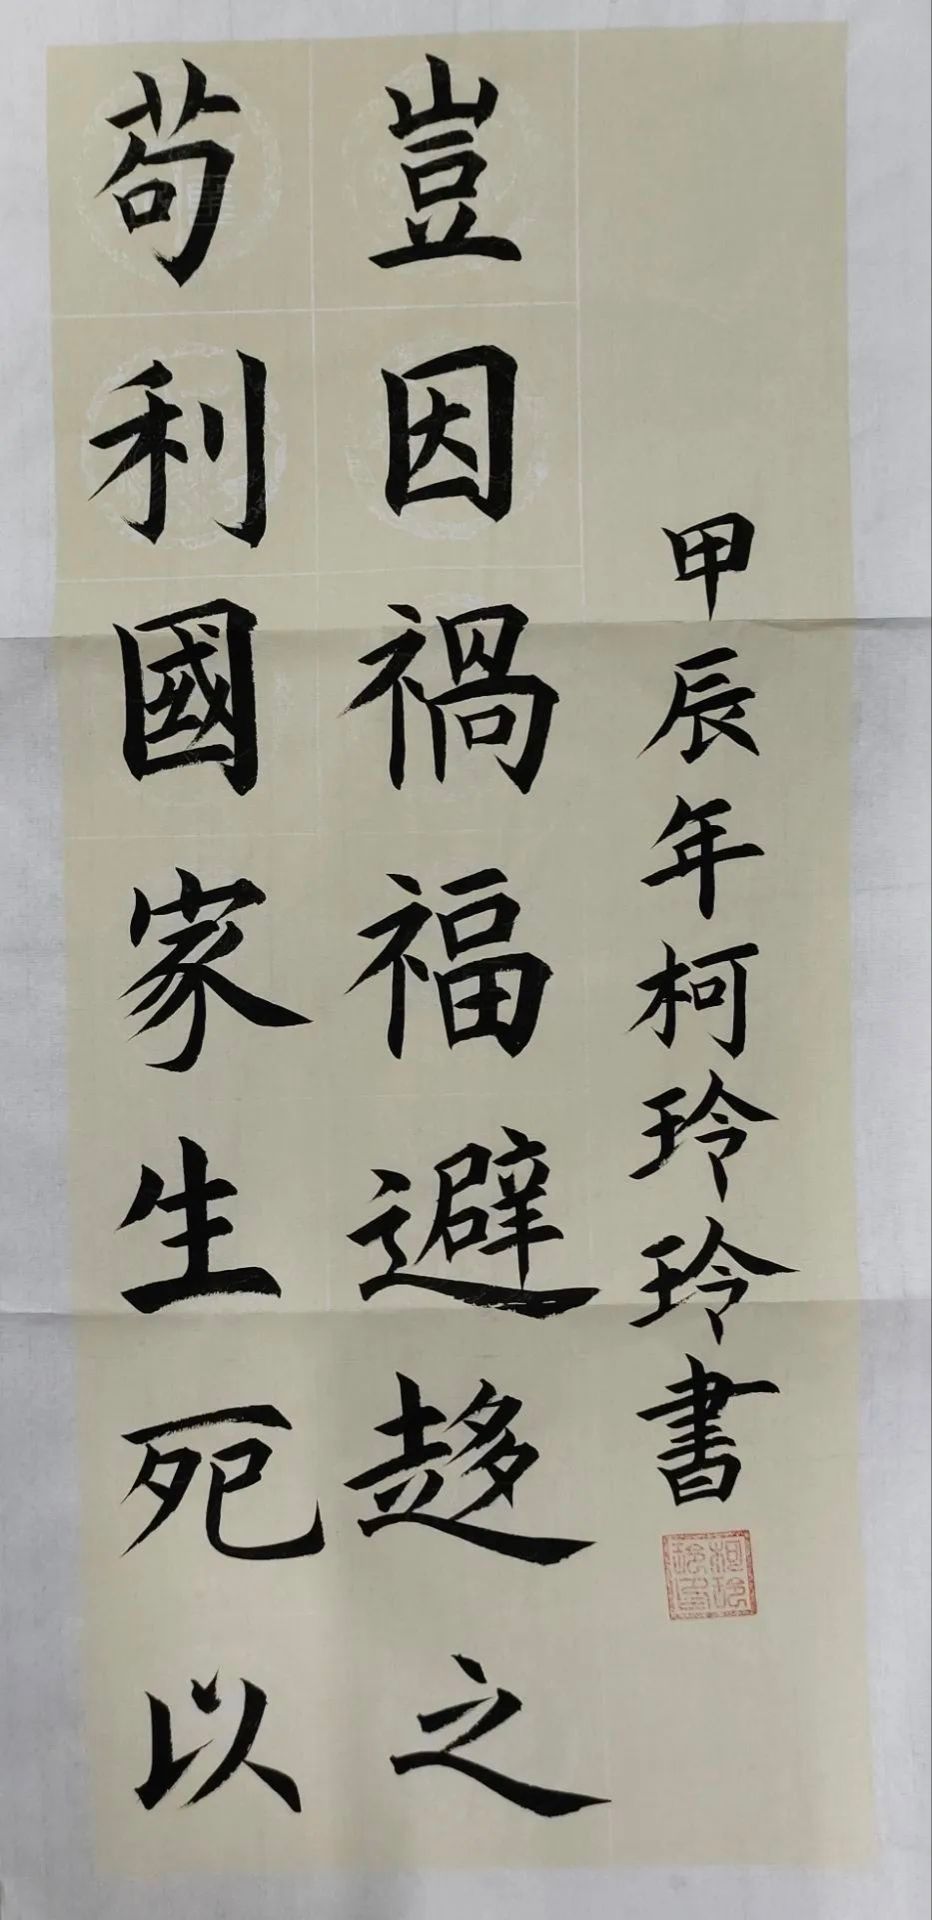 苟利國家生死以
豈因禍福避趍之
甲辰年柯玲玲書
柯玲
玲